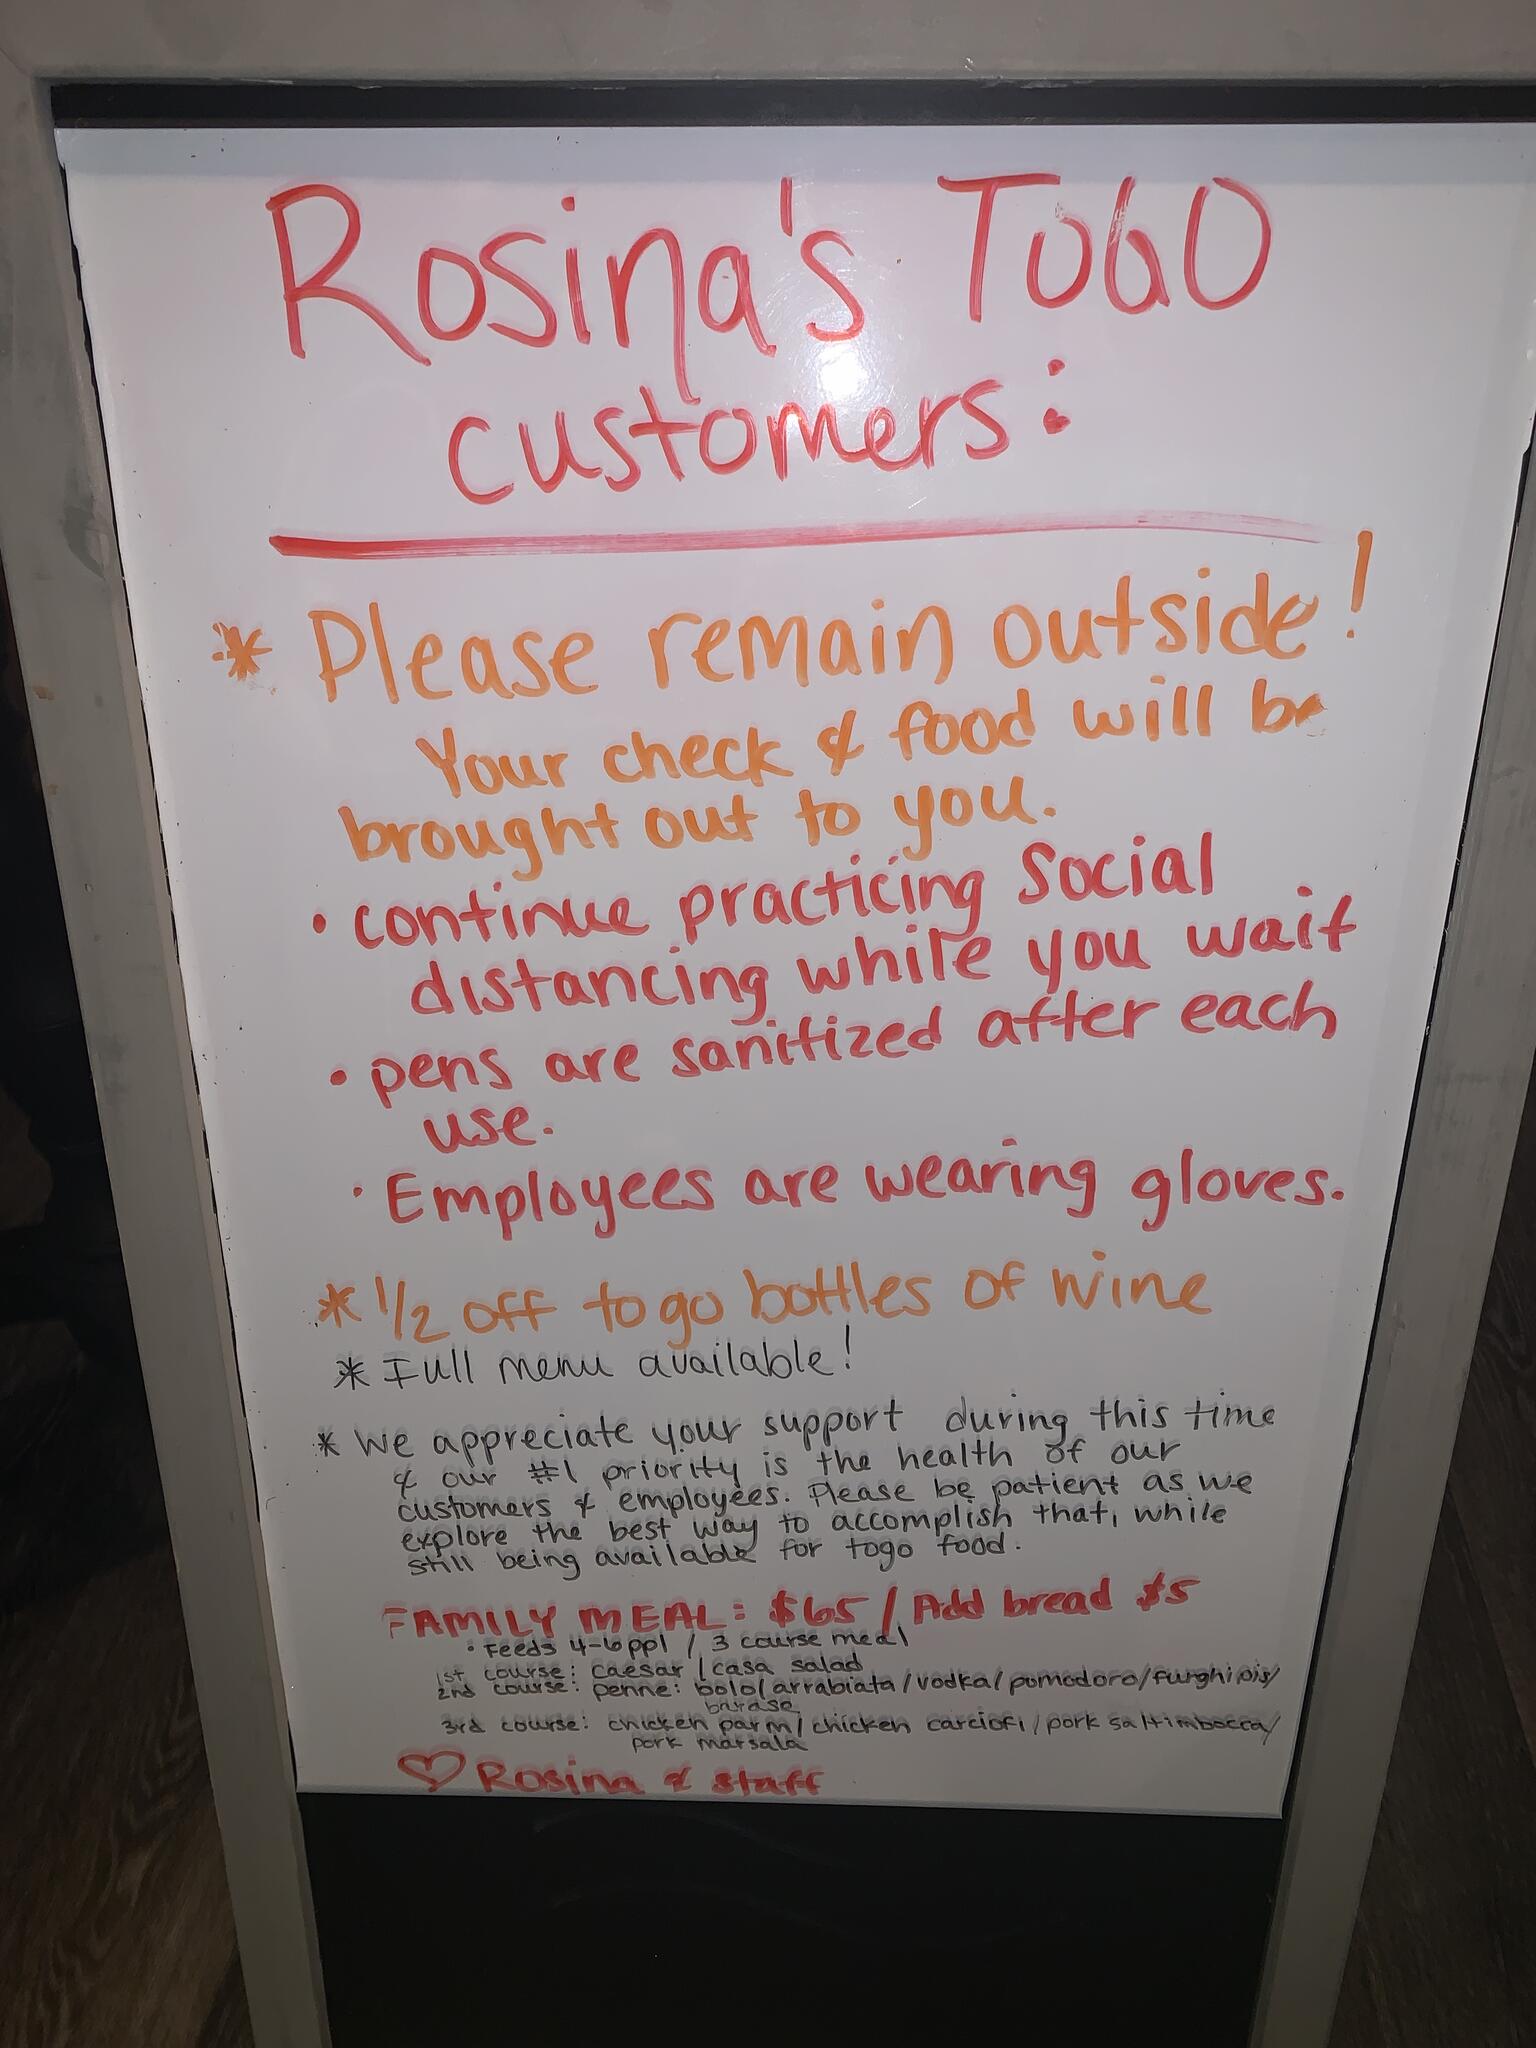 Rosina's ToGO
customers:
* Please remain outside!
Your check & food will be
brought out to you.
• continue practicing social
distancing while you wait
• pens are sanitized after each
use.
• Employees are wearing gloves.
* 1/2 off togo bottles of wine
* Full menu available!
* We appreciate your support during this time
& our #1 priority is the health of our
customers & employees. Please be patient as we
explore the best way to accomplish that, while
still being available for togo food.
FAMILY MEAL: $65 / Add bread $5
• Feeds 4-6 ppl / 3 course meal
1st course: caesar / casa salad
2nd course: penne: bolo/arrabiata/vodka/pomodoro/funghi
3rd course: chicken parm/chicken carciofi/pork saltimbocca/
pork marsala
♡ Rosina & staff